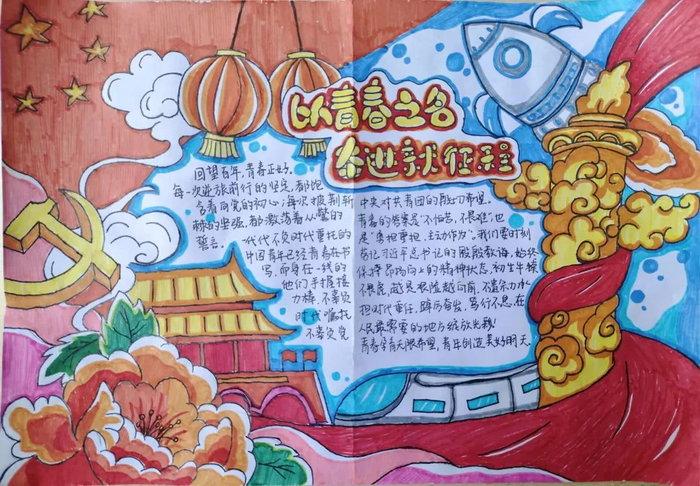 以青春之名
奋进新征程
回望百年,青春正好。
每一次逆旅前行的坚定,都饱
含着同党的初心;每次披荆斩
棘的坚强,都激荡着从誓的
誓言。一代代不负时代重托的
中国青年已经青春在书
写,而身在一线的
他们手握接
力棒,不辜负
时代嘱托
不辜负党
中央对共青团的殷切希望。
青春的答案是"不怕苦、不畏难",也
是"勇担重担,主动作为"。我们要时刻
牢记习近平总书记的殷殷教诲,始终
保持昂扬向上的精神状态,初生牛犊
不畏艮,越是艰险越向前,不遗余力水
担时代重任,踔厉奋发,笃行不怠,在
人民最需要的地方绽放光彩!
青春孕育无限希望,青年创造美好明天。